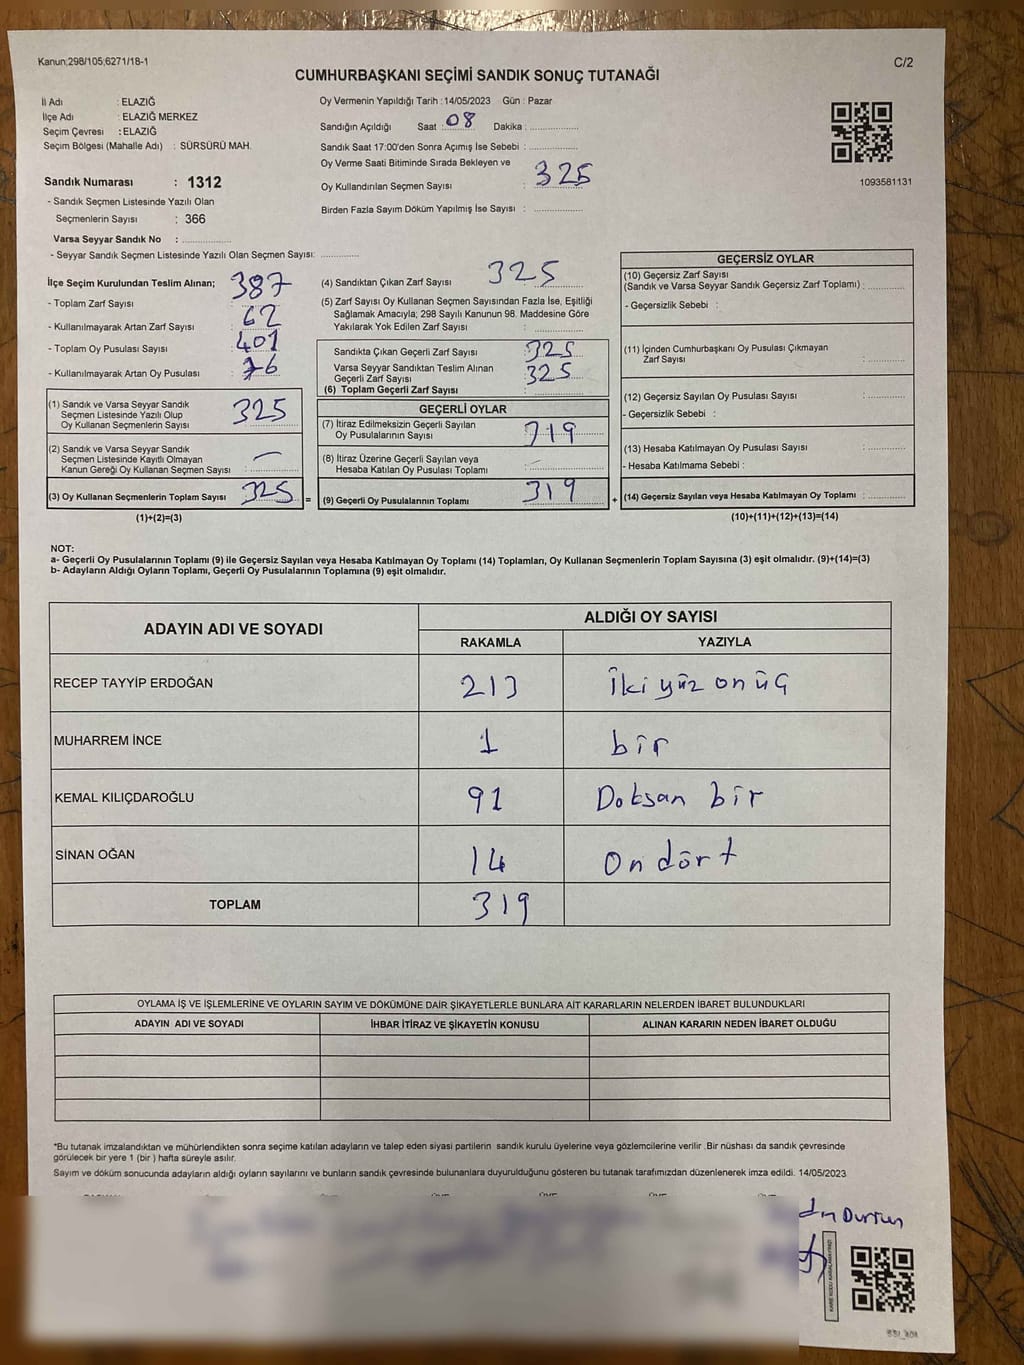 Kanun;298/105;6271/18-1
C/2
CUMHURBAŞKANI SEÇİMİ SANDIK SONUÇ TUTANAĞI
İl Adı : ELAZIĞ
İlçe Adı : ELAZIĞ MERKEZ
Seçim Çevresi : ELAZIĞ
Seçim Bölgesi (Mahalle Adı) : SÜRSÜRÜ MAH.
Sandık Numarası : 1312
- Sandık Seçmen Listesinde Yazılı Olan
Seçmenlerin Sayısı : 366
Varsa Seyyar Sandık No : ..............
- Seyyar Sandık Seçmen Listesinde Yazılı Olan Seçmen Sayısı: ............
Oy Vermenin Yapıldığı Tarih : 14/05/2023 Gün : Pazar
Sandığın Açıldığı Saat : 08 Dakika : ..............
Sandık Saat 17:00'den Sonra Açımış İse Sebebi : ..............
Oy Verme Saati Bitiminde Sırada Bekleyen ve
Oy Kullandırılan Seçmen Sayısı : 325
Birden Fazla Sayım Döküm Yapılmış İse Sayısı : ..............
1093581131
İlçe Seçim Kurulundan Teslim Alınan;
- Toplam Zarf Sayısı : 387
- Kullanılmayarak Artan Zarf Sayısı : 62
- Toplam Oy Pusulası Sayısı : 401
- Kullanılmayarak Artan Oy Pusulası : 76
(1) Sandık ve Varsa Seyyar Sandık
Seçmen Listesinde Yazılı Olup
Oy Kullanan Seçmenlerin Sayısı : 325
(2) Sandık ve Varsa Seyyar Sandık
Seçmen Listesinde Kayıtlı Olmayan
Kanun Gereği Oy Kullanan Seçmen Sayısı : –
(3) Oy Kullanan Seçmenlerin Toplam Sayısı : 325 =
(1)+(2)=(3)
(4) Sandıktan Çıkan Zarf Sayısı : 325
(5) Zarf Sayısı Oy Kullanan Seçmen Sayısından Fazla İse, Eşitliği
Sağlamak Amacıyla; 298 Sayılı Kanunun 98. Maddesine Göre
Yakılarak Yok Edilen Zarf Sayısı : ..............
Sandıkta Çıkan Geçerli Zarf Sayısı : 325
Varsa Seyyar Sandıktan Teslim Alınan
Geçerli Zarf Sayısı : 325
(6) Toplam Geçerli Zarf Sayısı : ..............
GEÇERLİ OYLAR
(7) İtiraz Edilmeksizin Geçerli Sayılan
Oy Pusulalarının Sayısı : 319
(8) İtiraz Üzerine Geçerli Sayılan veya
Hesaba Katılan Oy Pusulası Toplamı : –
(9) Geçerli Oy Pusulalarının Toplamı : 319 +
GEÇERSİZ OYLAR
(10) Geçersiz Zarf Sayısı
(Sandık ve Varsa Seyyar Sandık Geçersiz Zarf Toplamı) : ..........
- Geçersizlik Sebebi :
(11) İçinden Cumhurbaşkanı Oy Pusulası Çıkmayan
Zarf Sayısı : ..........
(12) Geçersiz Sayılan Oy Pusulası Sayısı : ..........
- Geçersizlik Sebebi :
(13) Hesaba Katılmayan Oy Pusulası Sayısı : ..........
- Hesaba Katılmama Sebebi :
(14) Geçersiz Sayılan veya Hesaba Katılmayan Oy Toplamı : ..........
(10)+(11)+(12)+(13)=(14)
NOT:
a- Geçerli Oy Pusulalarının Toplamı (9) ile Geçersiz Sayılan veya Hesaba Katılmayan Oy Toplamı (14) Toplamları, Oy Kullanan Seçmenlerin Toplam Sayısına (3) eşit olmalıdır. (9)+(14)=(3)
b- Adayların Aldığı Oyların Toplamı, Geçerli Oy Pusulalarının Toplamına (9) eşit olmalıdır.
ADAYIN ADI VE SOYADI ALDIĞI OY SAYISI
RAKAMLA YAZIYLA
RECEP TAYYİP ERDOĞAN 213 İki yüz onüç
MUHARREM İNCE 1 bir
KEMAL KILIÇDAROĞLU 91 Doksan bir
SİNAN OĞAN 14 On dört
TOPLAM 319
OYLAMA İŞ VE İŞLEMLERİNE VE OYLARIN SAYIM VE DÖKÜMÜNE DAİR ŞİKAYETLERLE BUNLARA AİT KARARLARIN NELERDEN İBARET BULUNDUKLARI
ADAYIN ADI VE SOYADI İHBAR İTİRAZ VE ŞİKAYETİN KONUSU ALINAN KARARIN NEDEN İBARET OLDUĞU
*Bu tutanak imzalandıktan ve mühürlendikten sonra seçime katılan adayların ve talep eden siyasi partilerin sandık kurulu üyelerine veya gözlemcilerine verilir .Bir nüshası da sandık çevresinde
görülecek bir yere 1 (bir ) hafta süreyle asılır.
Sayım ve döküm sonucunda adayların aldığı oyların sayılarını ve bunların sandık çevresinde bulunanlara duyurulduğunu gösteren bu tutanak tarafımızdan düzenlenerek imza edildi. 14/05/2023
Dursun
KARE KODU KARALAMAYINIZ!